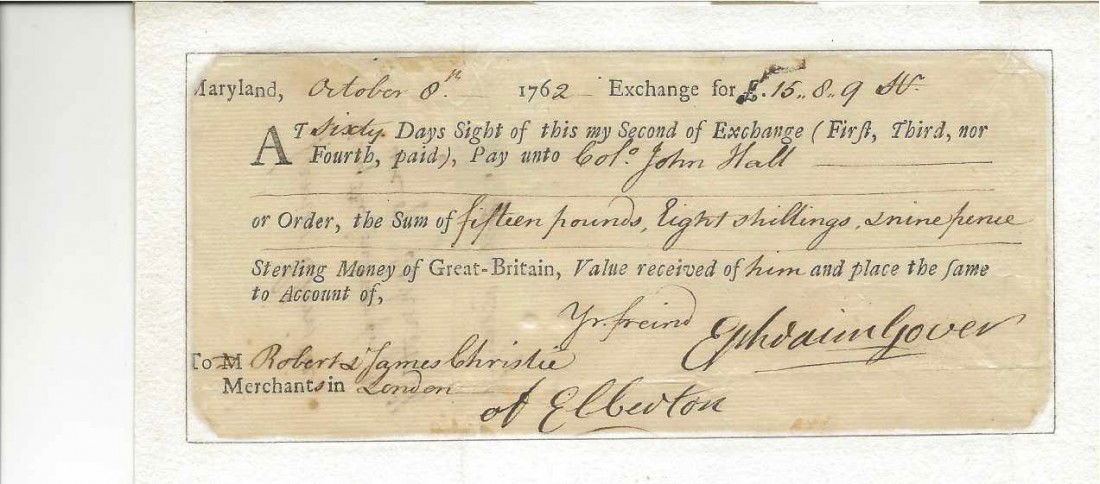 Maryland, October 8.th 1762 Exchange for £.15..8..9 St.r
AT Sixty Days Sight of this my Second of Exchange (Firſt, Third, nor
Fourth, paid), Pay unto Col.o John Hall
or Order, the Sum of fifteen pounds, Eight shillings, & nine pence
Sterling Money of Great-Britain, Value received of him and place the ſame
to Account of,
Yr. freind Ephraim Gover
To M Robert & James Christie
Merchants in London
of Elberton